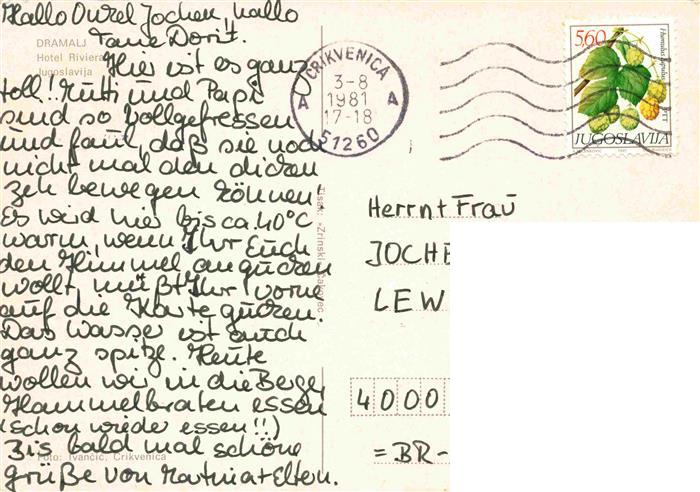 Hallo Onkel Jochen, hallo
Tante Dorit.
DRAMALJ
Hotel Riviera
Jugoslavija
Hier ist es ganz
toll!! Mutti und Papi
sind so vollgefressen
und faul, daß sie noch
nicht mal den dicken
Zeh bewegen können!
Es wird hier bis ca. 40°C
warm, wenn Ihr Euch
den Himmel angucken
wollt, müßt Ihr vorne
auf die Karte gucken.
Das Wasser ist auch
ganz spitze. Heute
wollen wir in die Berge,
Hammelbraten essen
(schon wieder essen!!)
Bis bald mal schöne
Foto: Ivančić, Crikvenica
grüße von + Eltern.
Tisak: »Zrinski« Čakovec
CRIKVENICA
3-8
A 1981 A
17-18
51260
5,60
Humulus lupulus
JUGOSLAVIJA
Herrn + Frau
JOCHE
LEW
4000
=BR-